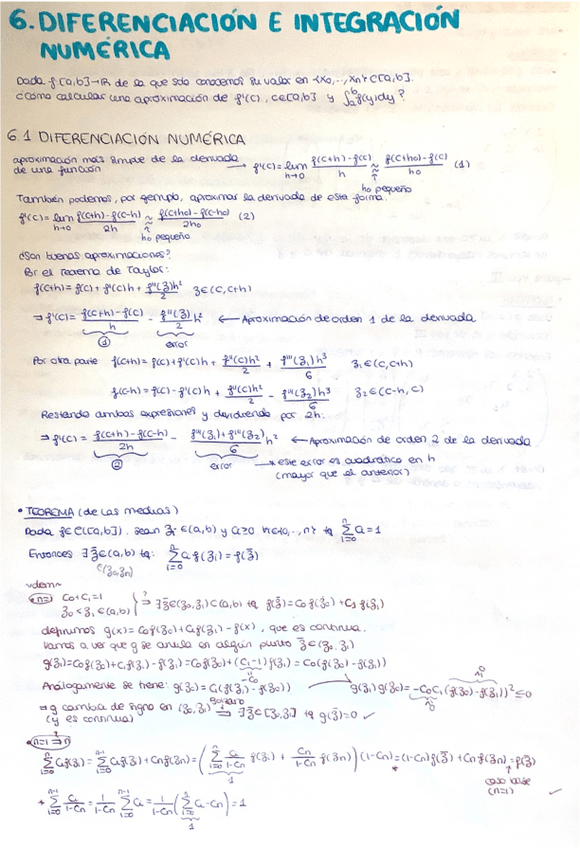 6. DIFERENCIACIÓN E INTEGRACIÓN
NUMÉRICA
Dada f:[a,b]→ℝ de la que solo conocemos su valor en {x₀,...,xₙ}⊂[a,b].
¿Cómo calcular una aproximación de f'(c), c∈[a,b] y ∫ₐᵇ f(y)dy?
6.1 DIFERENCIACIÓN NUMÉRICA
aproximación más simple de la derivada
de una función → f'(c) = lim h→0 (f(c+h)-f(c))/h ≈ (f(c+h₀)-f(c))/h₀ (1)
h₀ pequeño
También podemos, por ejemplo, aproximar la derivada de esta forma:
f'(c) = lim h→0 (f(c+h)-f(c-h))/2h ≈ (f(c+h₀)-f(c-h₀))/2h₀ (2)
h₀ pequeño
¿Son buenas aproximaciones?
Por el teorema de Taylor:
f(c+h) = f(c) + f'(c)h + f''(ξ)h²/2 ξ∈(c,c+h)
⇒ f'(c) = (f(c+h)-f(c))/h - f''(ξ)/2 h² ← Aproximación de orden 1 de la derivada
① error
Por otra parte f(c+h) = f(c) + f'(c)h + f''(c)h²/2 + f'''(ξ₁)h³/6 ξ₁∈(c,c+h)
f(c-h) = f(c) - f'(c)h + f''(c)h²/2 - f'''(ξ₂)h³/6 ξ₂∈(c-h,c)
Restando ambas expresiones y dividiendo por 2h:
⇒ f'(c) = (f(c+h)-f(c-h))/2h - (f'''(ξ₁)+f'''(ξ₂))/6 h² ← Aproximación de orden 2 de la derivada
② error → este error es cuadrático en h
(mayor que el anterior)
• TEOREMA (de las medias)
Dada f∈C([a,b]). Sean ξᵢ∈(a,b) y cᵢ≥0 i∈{0,...,n} tq ∑ᵢ₌₀ⁿ cᵢ=1
Entonces ∃ξ̄∈(a,b) tq: ∑ᵢ₌₀ⁿ cᵢ f(ξᵢ) = f(ξ̄)
∈(ξ₀,ξₙ)
~dem~
n=1 c₀+c₁=1
ξ₀<ξ₁∈(a,b) } ?⇒ ∃ξ̄∈(ξ₀,ξ₁)⊂(a,b) tq f(ξ̄)=c₀f(ξ₀)+c₁f(ξ₁)
definimos g(x)=c₀f(ξ₀)+c₁f(ξ₁)-f(x), que es continua.
Vamos a ver que g se anula en algún punto ξ̄∈(ξ₀,ξ₁)
g(ξ₁)=c₀f(ξ₀)+c₁f(ξ₁)-f(ξ₁)=c₀f(ξ₀)+(c₁-1)f(ξ₁)=c₀(f(ξ₀)-f(ξ₁))
-c₀
Análogamente se tiene: g(ξ₀)=c₁(f(ξ₁)-f(ξ₀)) → g(ξ₁)g(ξ₀)=-c₀c₁(f(ξ₀)-f(ξ₁))²≤0
⇒ g cambia de signo en (ξ₀,ξ₁) Bolzano⇒ ∃ξ̄∈[ξ₀,ξ₁] tq g(ξ̄)=0 ✓
(y es continua)
n-1 ?⇒ n
∑ᵢ₌₀ⁿ cᵢf(ξᵢ) = ∑ᵢ₌₀ⁿ⁻¹ cᵢf(ξᵢ)+cₙf(ξₙ) = (∑ᵢ₌₀ⁿ cᵢ/(1-cₙ) f(ξᵢ) + cₙ/(1-cₙ) f(ξₙ))(1-cₙ) = (1-cₙ)f(ξ̄)+cₙf(ξₙ) = f(ξ̄)
1 * caso base
(n=1)
* ∑ᵢ₌₀ⁿ⁻¹ cᵢ/(1-cₙ) = 1/(1-cₙ) ∑ᵢ₌₀ⁿ⁻¹ cᵢ = 1/(1-cₙ) (∑ᵢ₌₀ⁿ cᵢ-cₙ) = 1 ✓
1